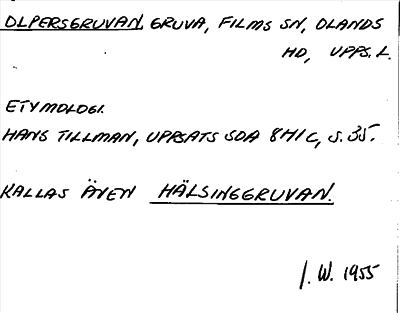 OLPERSGRUVAN, GRUVA, FILMS SN, OLANDS
HD, UPPS. L.
ETYMOLOGI.
HANS TILLMAN, UPPSATS SOA 8H1C, S. 35.
KALLAS ÄVEN HÄLSINGGRUVAN.
I. W. 1955